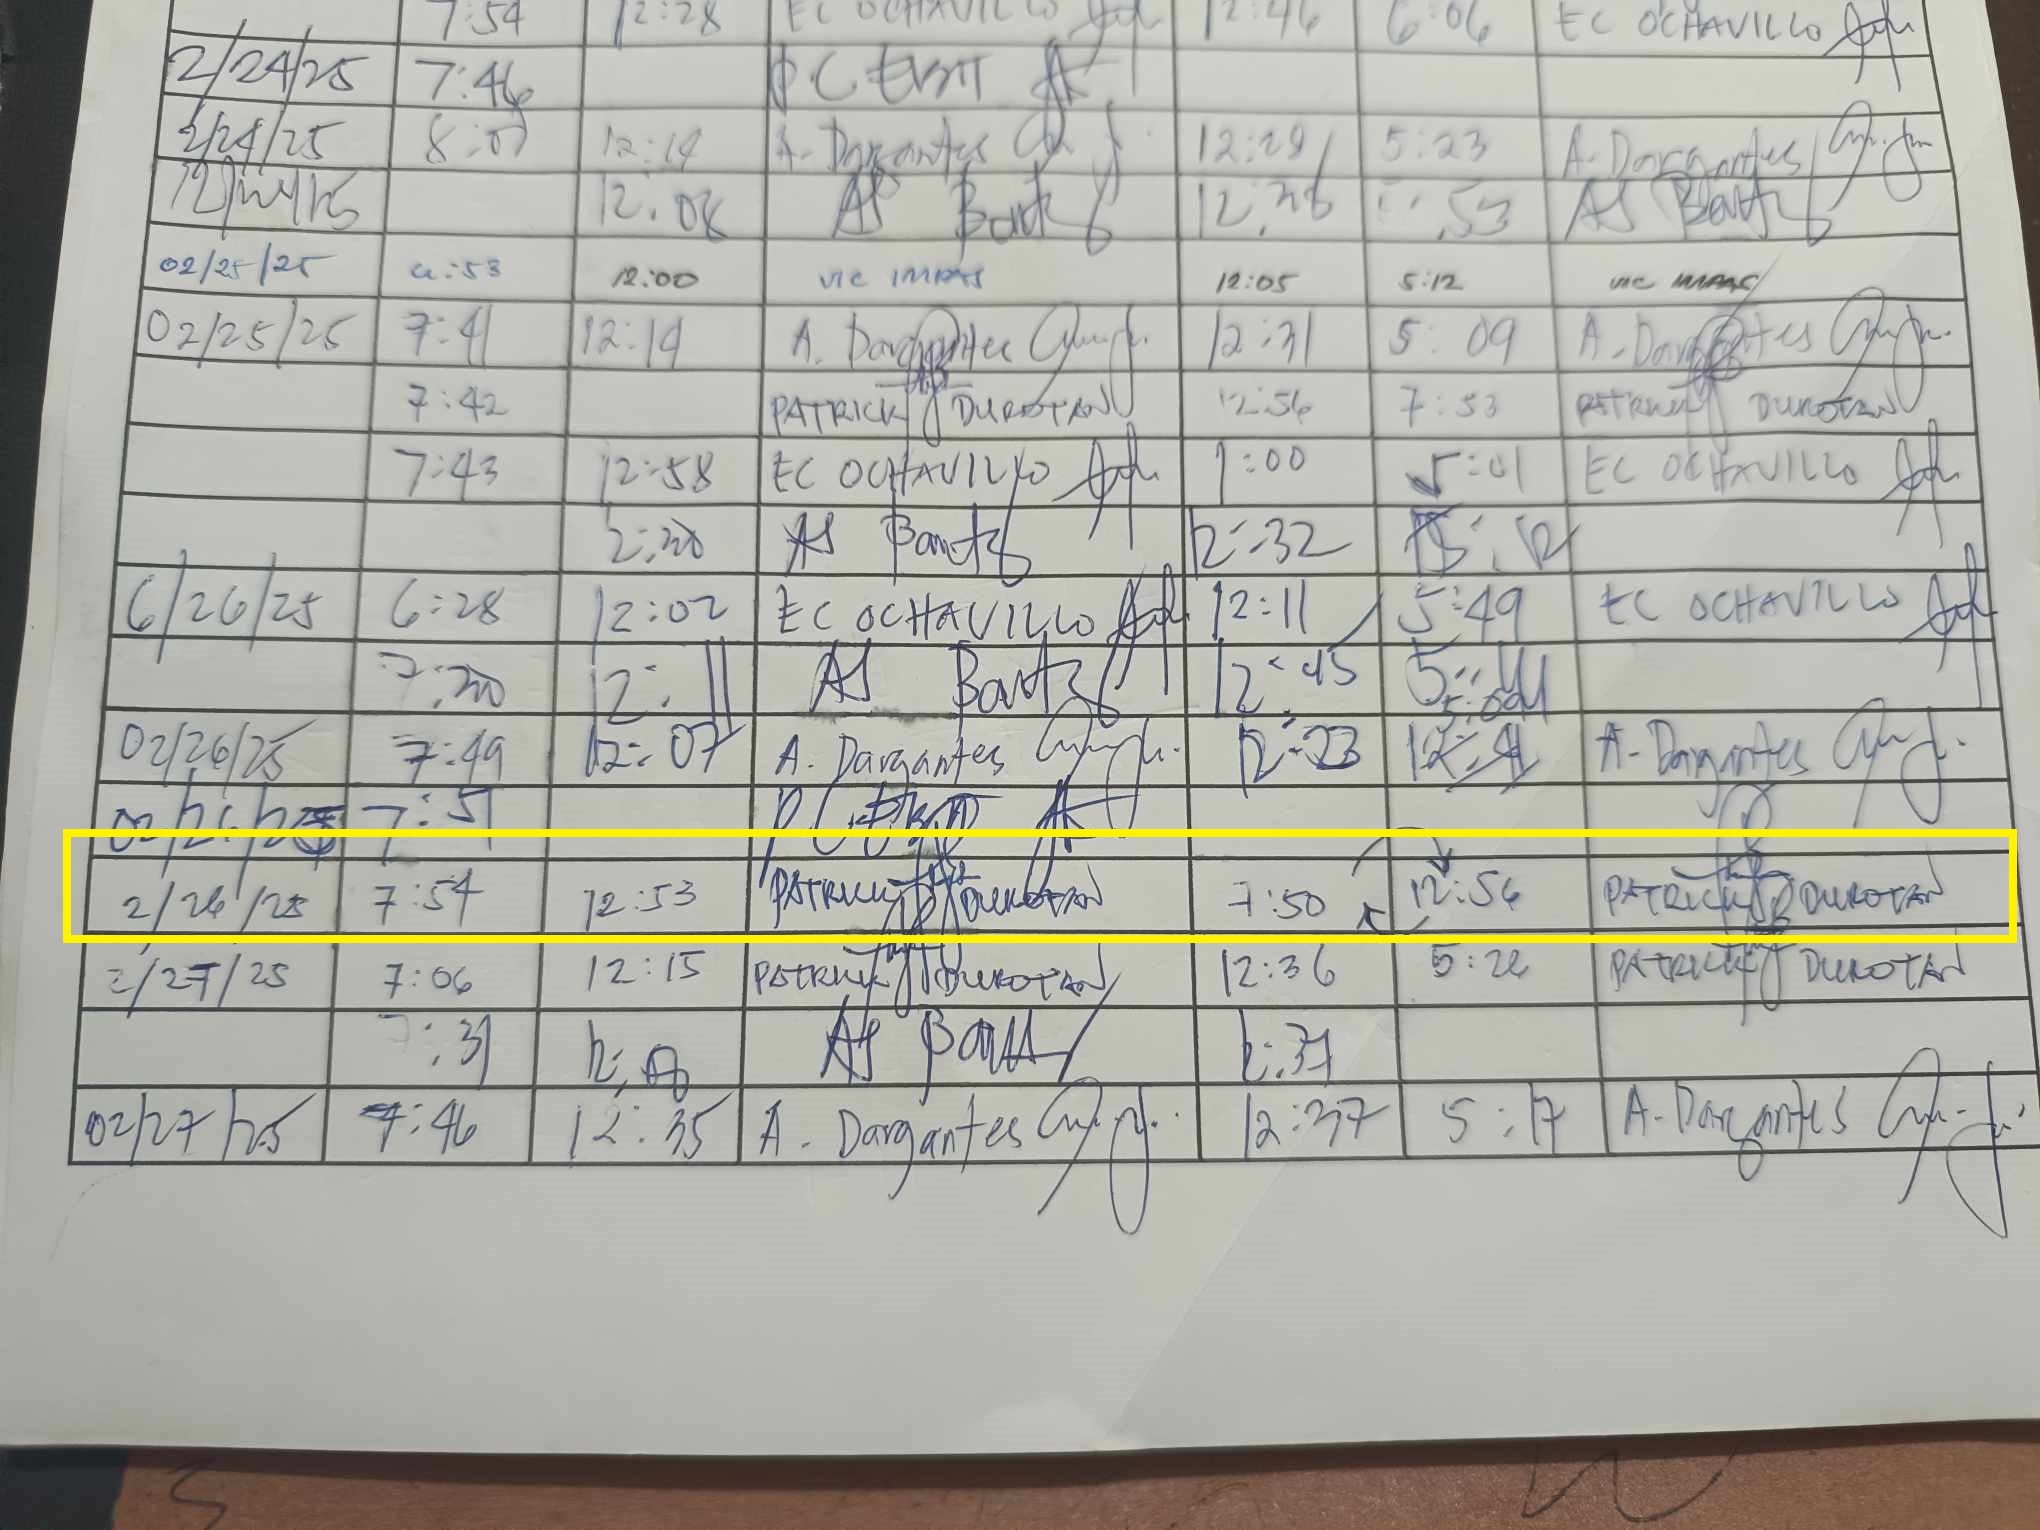 7:54 12:28 EC OCHAVILLO 12:46 6:06 EC OCHAVILLO
2/24/25 7:46
2/24/25 8:01 12:14 A. Dargantes 12:29 5:23 A. Dargantes
12:08 AS 12:38 :53 AS
02/25/25 :53 12:00 VIC IMPAS 12:05 5:12 VIC IMPAS
02/25/25 7:41 12:14 A. Dargantes 12:31 5:09 A. Dargantes
7:42 PATRICK DUROTAN 12:56 7:53 PATRICK DUROTAN
7:43 12:58 EC OCHAVILLO 1:00 5:01 EC OCHAVILLO
AS 12:32
6/26/25 6:28 12:02 EC OCHAVILLO 12:11 5:49 EC OCHAVILLO
7:20 12:11 AS 12:45
02/26/25 7:49 12:07 A. Dargantes 12:23 A. Dargantes
02/26/25 7:51
2/26/25 7:54 12:53 PATRICK DUROTAN 7:50 12:56 PATRICK DUROTAN
2/27/25 7:06 12:15 PATRICK DUROTAN 12:36 5:26 PATRICK DUROTAN
7:31 AS 12:37
02/27/25 7:46 12:35 A. Dargantes 12:37 5:17 A. Dargantes